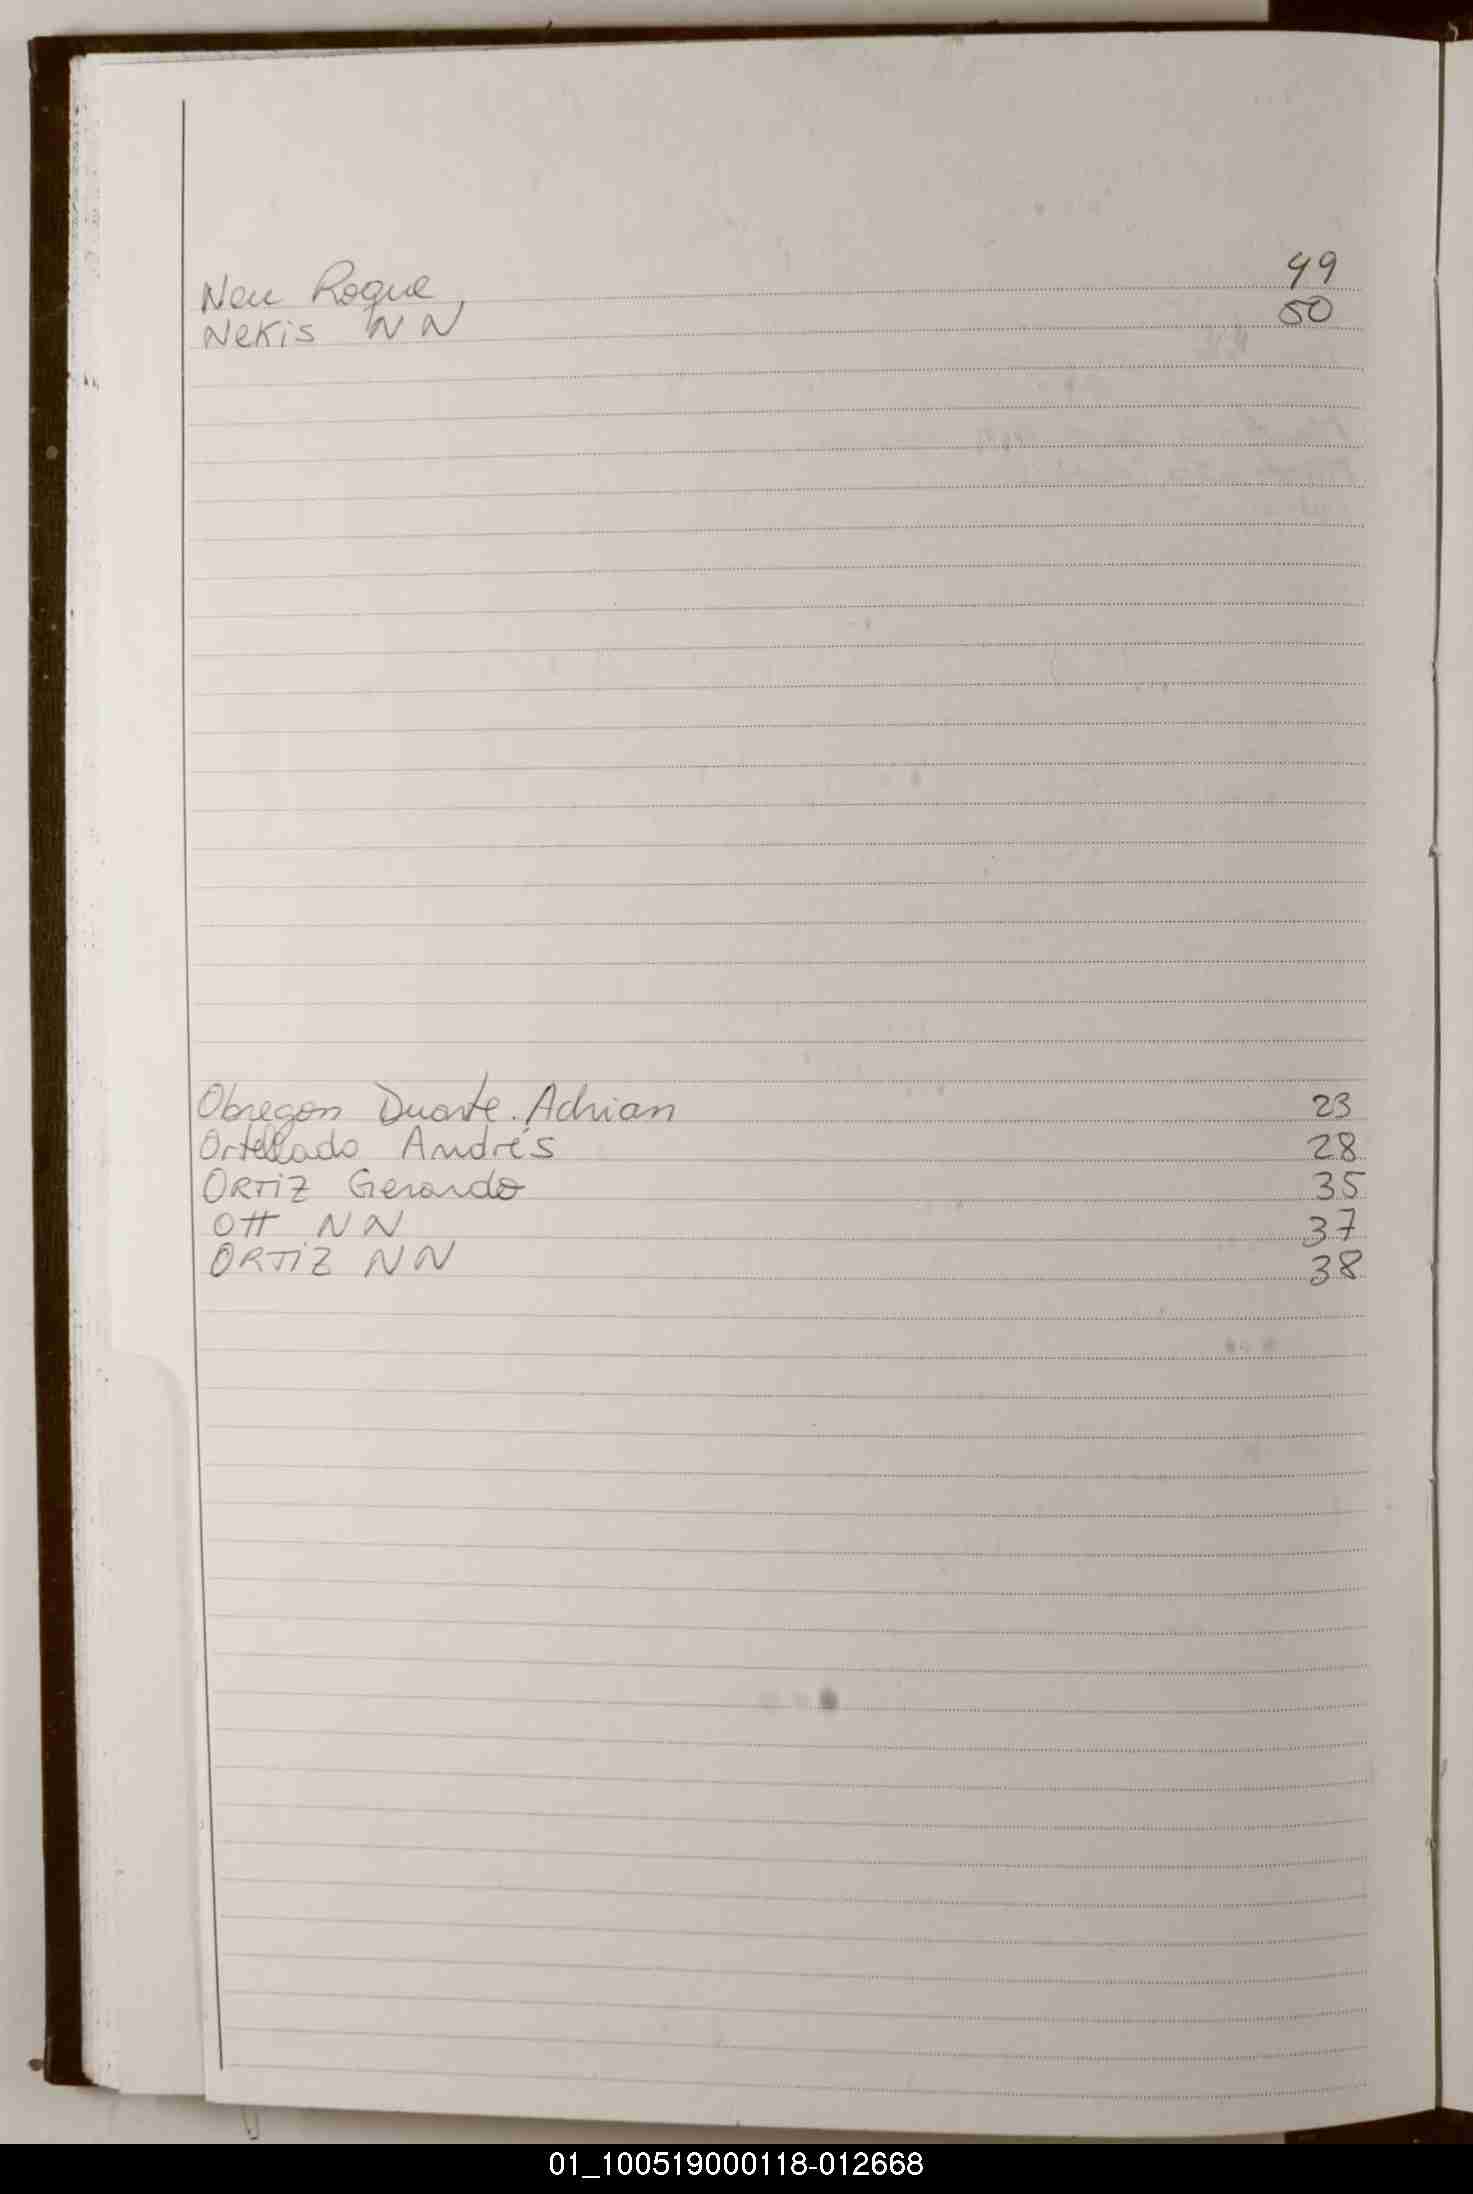 Neu Roque, 49
Nekis NN 50
Obregon Duarte. Adrian 23
Ortellado Andrés 28
ORTIZ Gerardo 35
Ott NN 37
ORTIZ NN 38
01_100519000118-012668